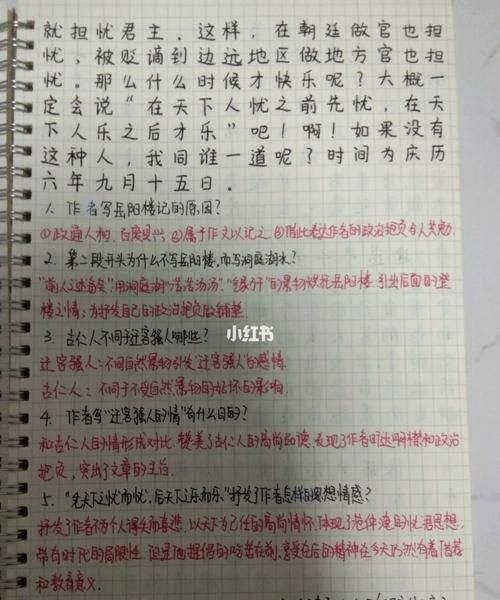 就担忧君主。这样，在朝廷做官也担
忧，被贬谪到边远地区做地方官也担
忧。那么什么时候才快乐呢？大概一
定会说“在天下人忧之前先忧，在天
下人乐之后才乐”吧！啊！如果没有
这种人，我同谁一道呢？时间为庆历
六年九月十五日。
1. 作者写岳阳楼记的原因？
①政通人和，百废具兴 ②属予作文以记之 ③借此表达作者的政治抱负与人共勉
2. 第二段开头为什么不写岳阳楼，而写洞庭湖水？
"前人之述备矣"用洞庭湖"浩浩汤汤"的景物 岳阳楼 引出后面的登
楼之情；为抒发自己的政治抱负做铺垫
3. 古仁人不同于迁客骚人哪些？
迁客骚人：不同自然景物引发"迁客骚人"的感情
古仁人：不同于不受自然景物的好坏的影响
4. 作者写"迁客骚人的情"有什么目的？
和古仁人的情形成对比，赞美了古仁人的高尚品德，表现了作者旷达胸襟和政治
抱负，突出了文章的主旨
5. "先天下之忧而忧，后天下之乐而乐"抒发了作者怎样的思想情感？
抒发了作者不为个人得失而喜悲，以天下为己任的高尚情怀，体现了范仲淹的忧君思想，
带有时代的局限性，但是他提倡的吃苦在前，享受在后的精神在今天仍然有着借鉴
和教育意义。
小红书